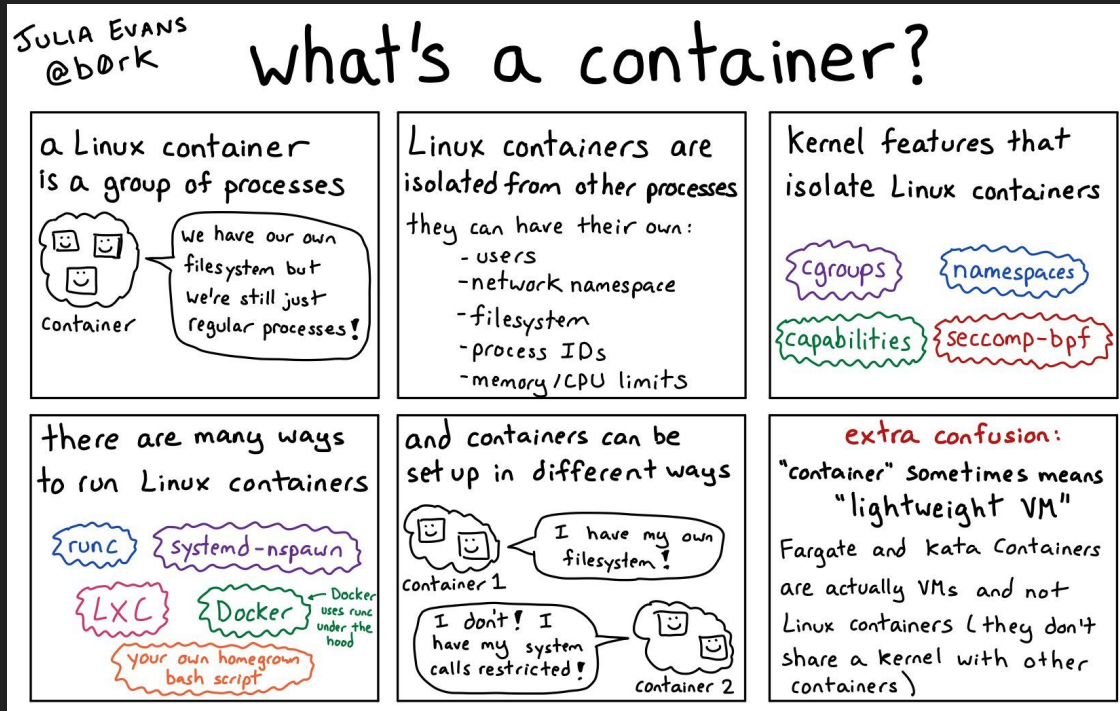 JULIA EVANS
@b0rk
what's a container?
a Linux container
is a group of processes
we have our own
filesystem but
we're still just
regular processes!
container
Linux containers are
isolated from other processes
they can have their own:
- users
- network namespace
- filesystem
- process IDs
- memory/CPU limits
Kernel features that
isolate Linux containers
cgroups
namespaces
capabilities
seccomp-bpf
there are many ways
to run Linux containers
runc
systemd-nspawn
LXC
Docker
← Docker
uses runc
under the
hood
your own homegrown
bash script
and containers can be
set up in different ways
I have my own
filesystem!
container 1
I don't! I
have my system
calls restricted!
container 2
extra confusion:
"container" sometimes means
"lightweight VM"
Fargate and Kata Containers
are actually VMs and not
Linux containers (they don't
share a kernel with other
containers)